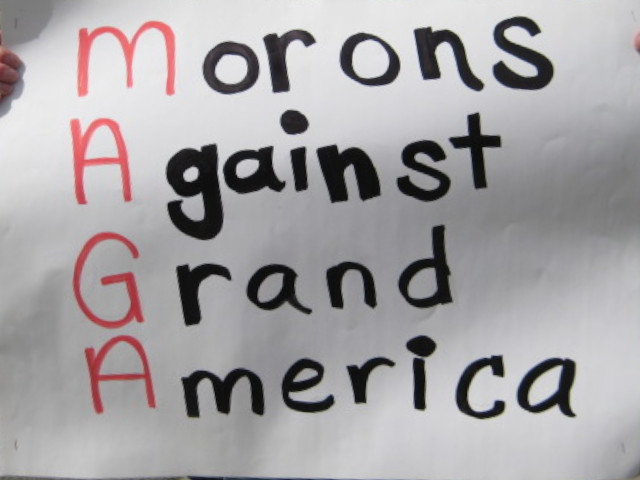 Morons
Against
Grand
America